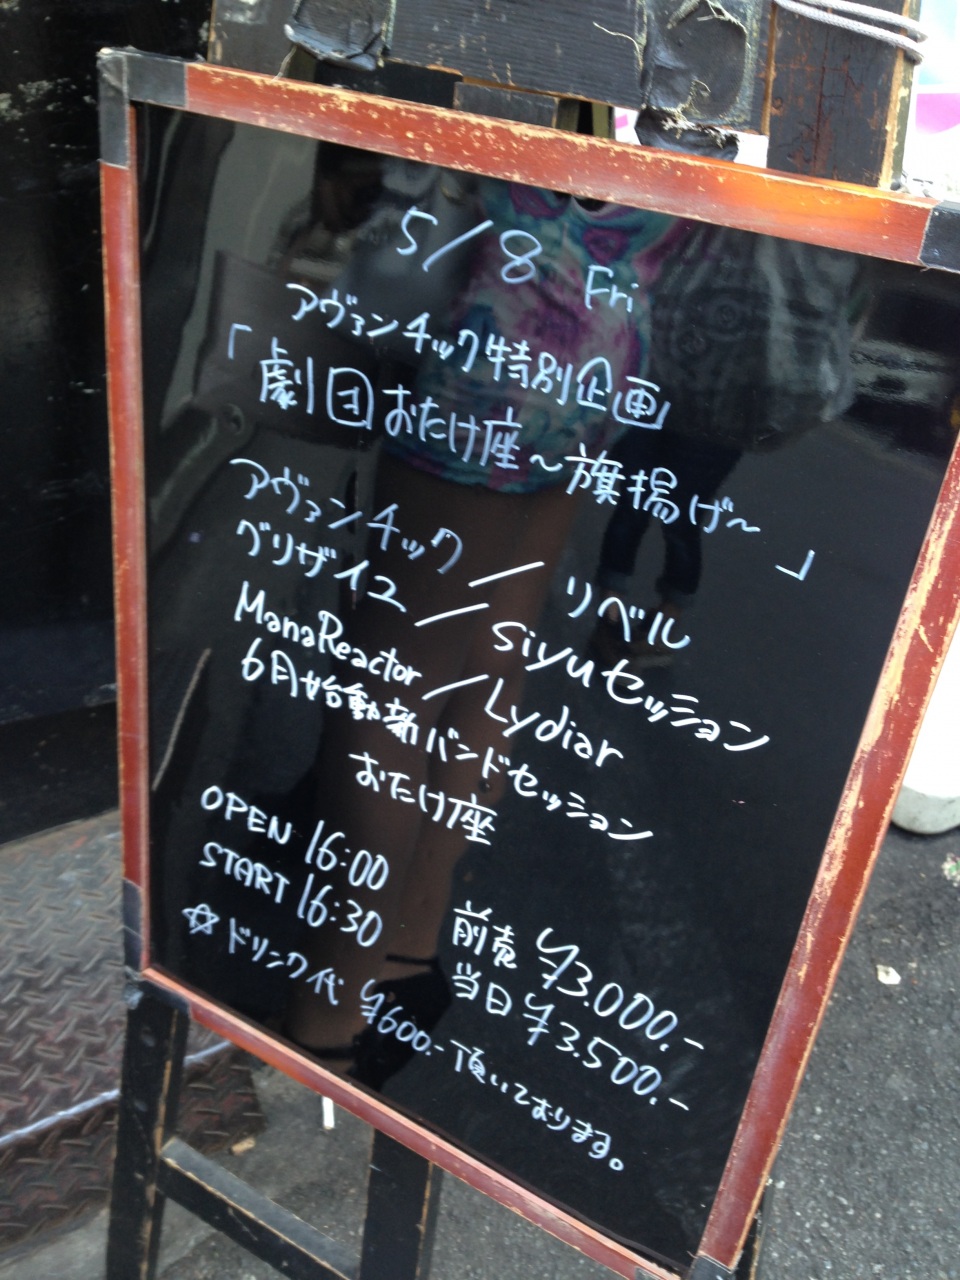 5/8 Fri
アヴァンチック特別企画
「劇団おたけ座～旗揚げ～」
アヴァンチック／リベル
グリザイユ／siyuセッション
ManaReactor／Lydiar
6月始動新バンドセッション
おたけ座
OPEN 16:00
START 16:30
前売 ¥3.000.-
当日 ¥3.500.-
☆ドリンク代 ¥600.-頂いております。